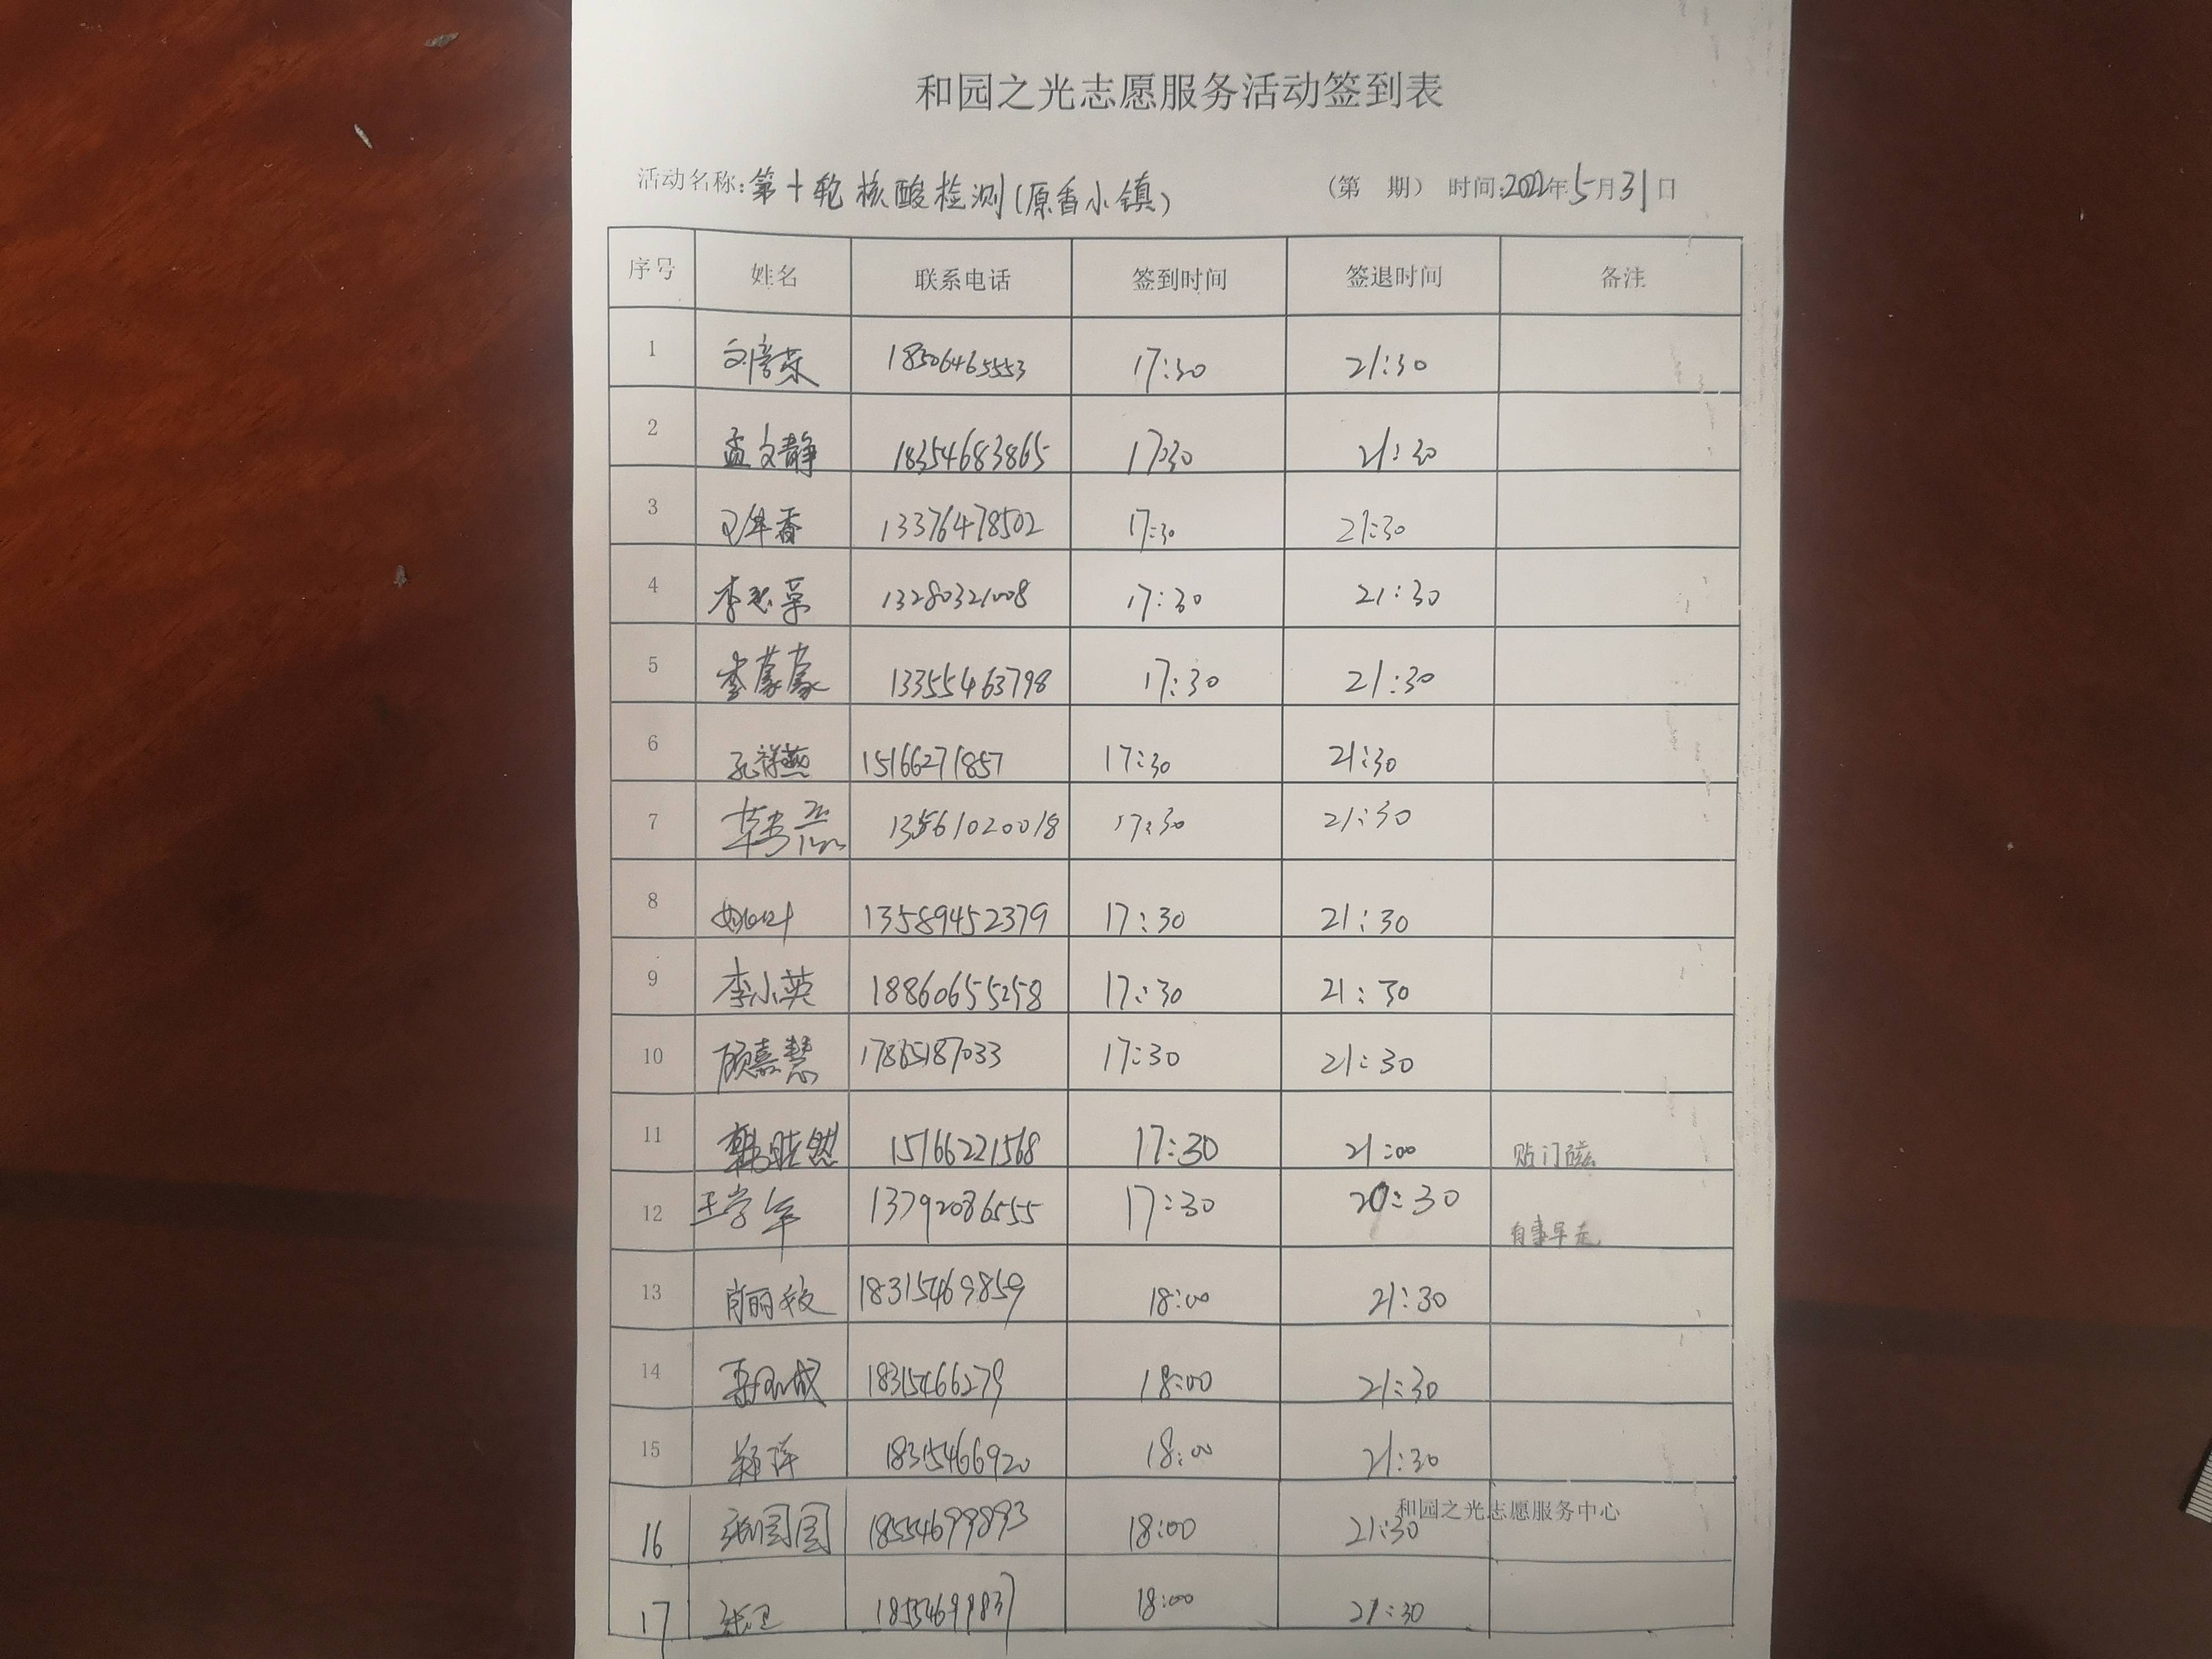 和园之光志愿服务活动签到表
活动名称:第十轮核酸检测(原香小镇) (第 期) 时间:2022年5月31日
序号 姓名 联系电话 签到时间 签退时间 备注
1 18506465553 17:30 21:30
2 孟文静 18354683865 17:30 21:30
3 13376478502 17:30 21:30
4 13280321008 17:30 21:30
5 李蒙蒙 13355463798 17:30 21:30
6 孔祥燕 15166271857 17:30 21:30
7 韩磊 13561020018 17:30 21:30
8 13589452379 17:30 21:30
9 李小英 18860655258 17:30 21:30
10 顾嘉慧 17865187033 17:30 21:30
11 韩晓然 15166221568 17:30 21:00 贴门磁
12 王学军 13792086555 17:30 20:30 有事早走
13 肖丽 18315469859 18:00 21:30
14 18315466279 18:00 21:30
15 郑萍 18315466920 18:00 21:30
和园之光志愿服务中心
16 张圆圆 18554699893 18:00 21:30
17 18554699837 18:00 21:30